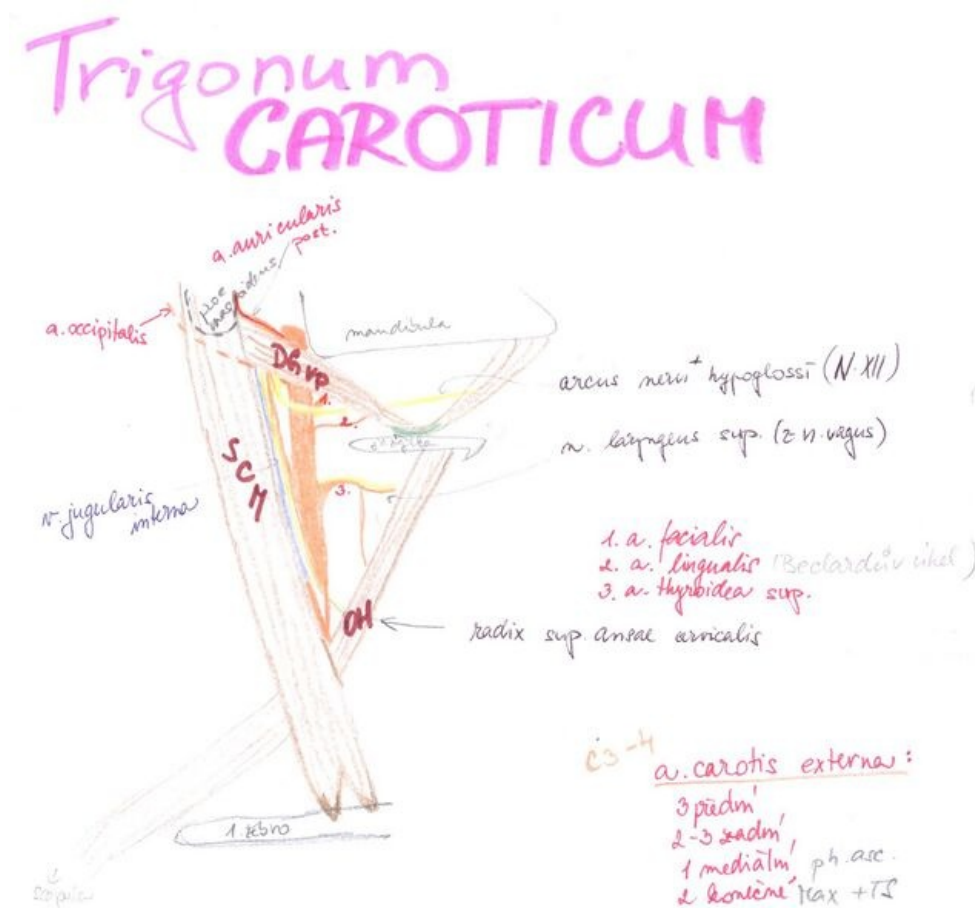 Trigonum
CAROTICUM
a. auricularis
post.
proc.
mastoideus
a. occipitalis
mandibula
DG vp
1.
2.
arcus nervi hypoglossi (N. XII)
n. laryngeus sup. (z n. vagus)
SCM
3.
v. jugularis
interna
1. a. facialis
2. a. lingualis (Beclardův úhel)
3. a. thyroidea sup.
OH
radix sup. ansae cervicalis
C3-4
a. carotis externa:
3 přední
2-3 zadní,
1 mediální ph. asc.
2 konečné Max + TS
1. žebro